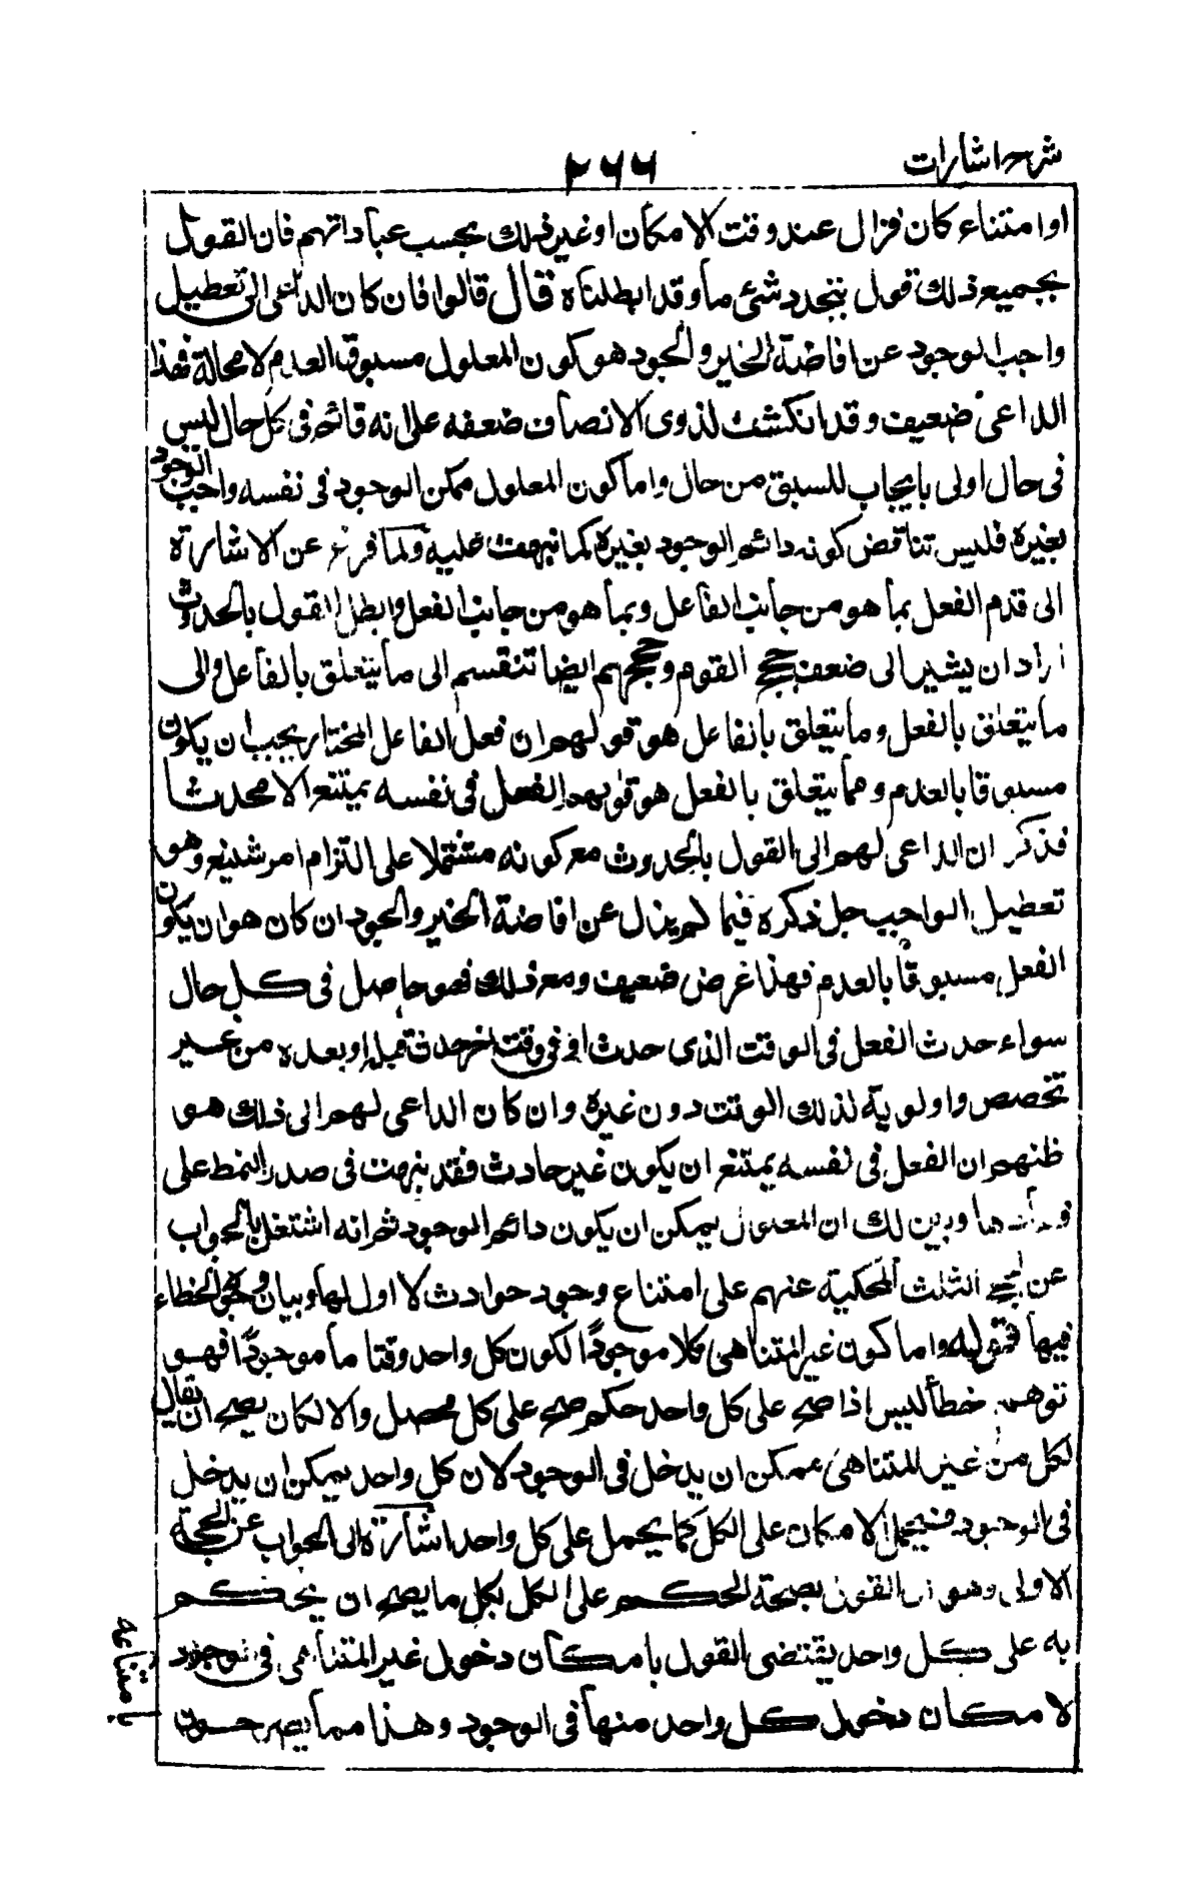 شرح اشارات
٢٦٦
او امتناع كان فزال عند وقت الامكان او غير ذلك بحسب عباداتهم فان القول
بجميع ذلك قول بتجدد شئ ما وقد ابطلناه قال قالوا فان كان الداعى الى تعطيل
واجب الوجود عن افاضة الخير والجود هو كون المعلول مسبوق العدم لا محالة فهذا
الداعى ضعيف وقد انكشف لذوى الانصاف ضعفه على انه قائم فى كل حال ليس
فى حال اولى بايجاب للسبق من حال واما كون المعلول ممكن الوجود فى نفسه واجب الوجود
بغيره فليس تناقض كونه دائم الوجود بغيره كما نبهت عليه ولما فرغ عن الاشارة
الى قدم الفعل بما هو من جانب الفاعل وبما هو من جانب الفعل وابطل القول بالحدوث
اراد ان يشير الى ضعف حجج القوم وحججهم ايضا تنقسم الى ما يتعلق بالفاعل والى
ما يتعلق بالفعل وما يتعلق بالفاعل هو قولهم ان فعل الفاعل المختار يجب ان يكون
مسبوقا بالعدم وما يتعلق بالفعل هو قولهم الفعل فى نفسه يمتنع الا محدثا
فذكر ان الداعى لهم الى القول بالحدوث مع كونه مشتملا على التزام امر شنيع وهو
تعطيل الواجب جل ذكره فيما لم يزل عن افاضة الخير والجود ان كان هو ان يكون
الفعل مسبوقا بالعدم فهذا غرض ضعيف ومع ذلك فهو حاصل فى كل حال
سواء حدث الفعل فى الوقت الذى حدث او فى وقت اخر حدث قبله او بعده من غير
تخصص واولوية لذلك الوقت دون غيره وان كان الداعى لهم الى ذلك هو
ظنهم ان الفعل فى نفسه يمتنع ان يكون غير حادث فقد نبهت فى صدر النمط على
وبين لك ان المعلول يمكن ان يكون دائم الوجود ثم انه اشتغل بالجواب
عن الحجج الثلث المحكية عنهم على امتناع وجود حوادث لا اول لها وبيان وجوه الخطاء
فيها فقوله واما كون غير المتناهى كلا موجودا لكون كل واحد وقتا ما موجودا فهو
توهم خطأ ليس اذا صح على كل واحد حكم صح على كل محصل والا لكان يصح ان يقال
لكل من غير المتناهى ممكن ان يدخل فى الوجود لان كل واحد يمكن ان يدخل
فى الوجود فيحمل الامكان على الكل كما يحمل على كل واحد اشارة الى الجواب عن الحجة
الاولى وهو ان القول بصحة الحكم على الكل بكل ما يصح ان يحكم
به على كل واحد يقتضى القول بامكان دخول غير المتناهى فى الوجود
لامكان دخول كل واحد منها فى الوجود وهذا مما يصرحون
بامتناعه